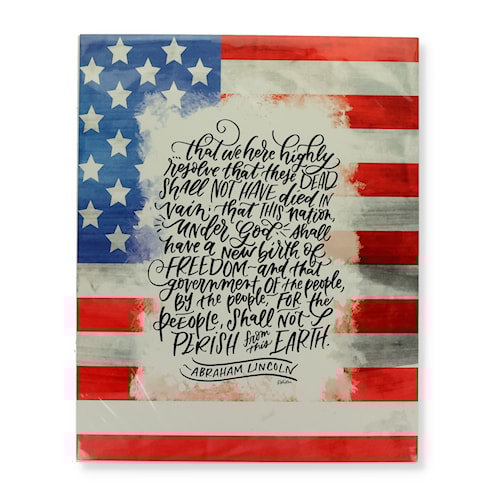 ...that we here highly
resolve that these DEAD
SHALL NOT HAVE died in
vain; that THIS nation,
under God shall
have a new birth of
FREEDOM-and that
government, OF the people,
BY the people, FOR the
PEOPLE, Shall NOT
PERISH from this EARTH.
ABRAHAM LINCOLN